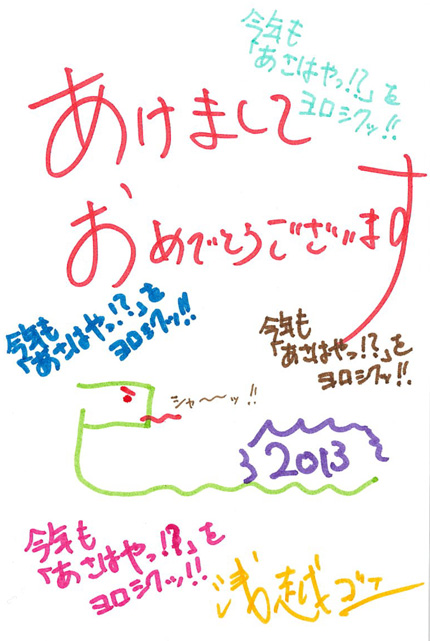 今年も
「あさはやっ!?」を
ヨロシクッ!!
あけまして
おめでとうございます
今年も
「あさはやっ!?」を
ヨロシクッ!!
今年も
「あさはやっ!?」を
ヨロシクッ!!
シャ〜〜ッ!!
2013
今年も
「あさはやっ!?」を
ヨロシクッ!!
浅越ゴエ